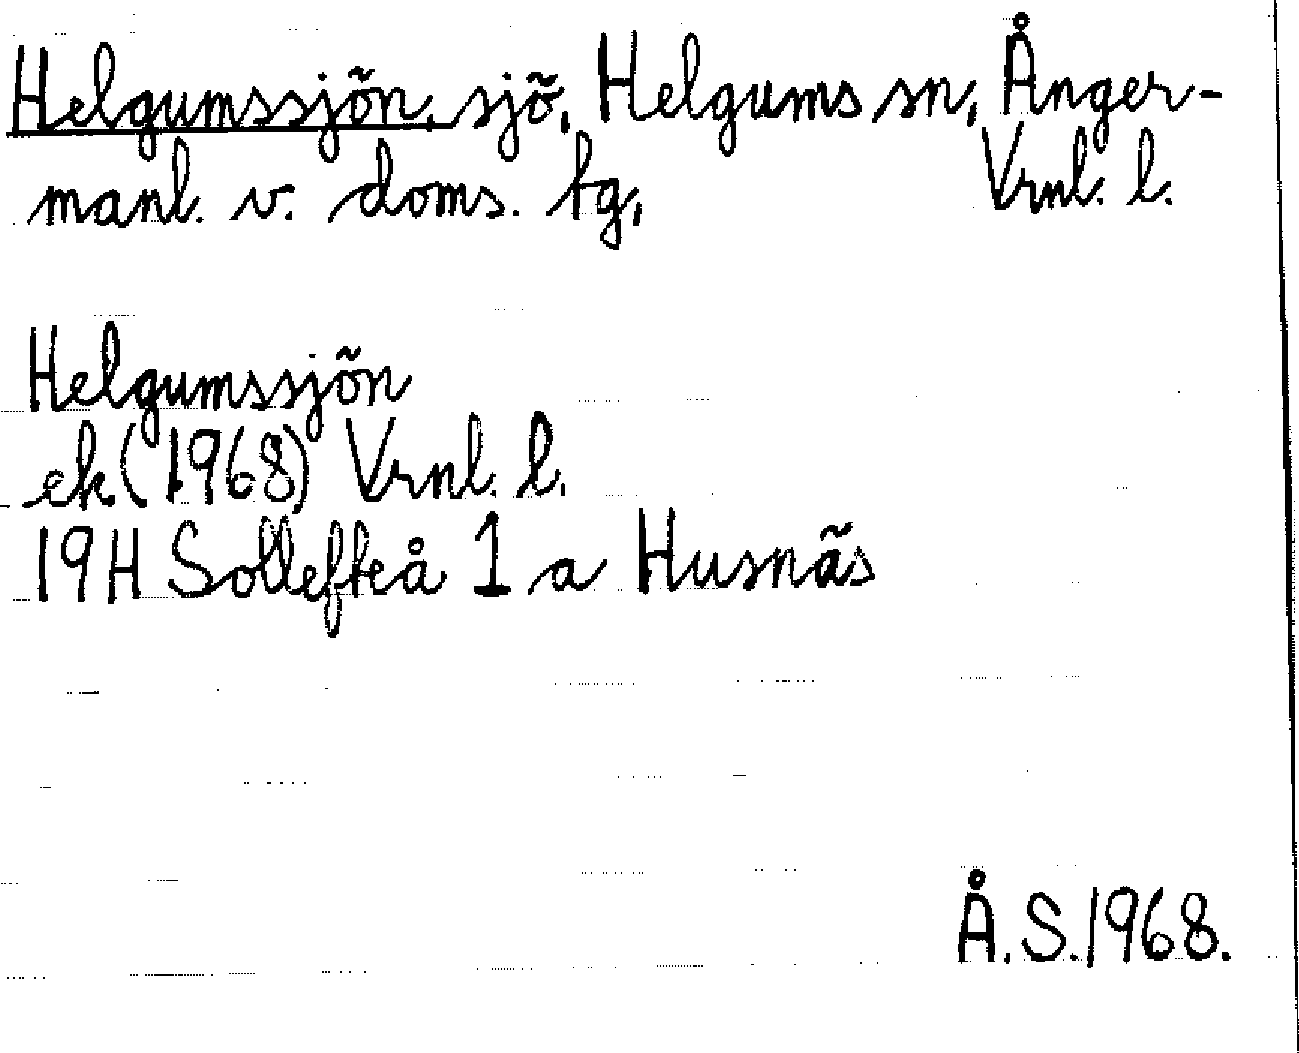 Helgumssjön, sjö, Helgums sn, Ånger-
manl. v. doms. tg, Vrnl. l.
Helgumssjön
ek (1968) Vrnl. l.
19H Sollefteå 1 a Husnäs
Å.S. 1968.